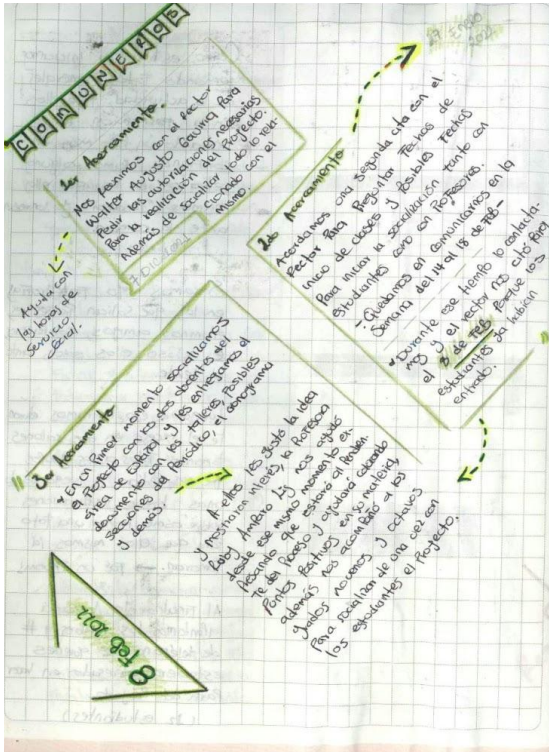 COMUNEROS
1er Acercamiento.
Nos reunimos con el rector
Walter Augusto Gaviria Para
Pedir las autorizaciones necesarias
Para la realización del Proyecto.
Además de socializar todo lo rela-
cionado con el
mismo.
7 Diciembre
Ayuda con
las horas de
servicio
social.
17
ENERO
2022
2do Acercamiento
Acordamos una segunda cita con el
rector Para Preguntar Fechas de
inicio de clases y Posibles Fechas
Para iniciar la socialización tanto con
estudiantes como con Profesores.
- Quedamos en comunicarnos en la
semana del 14 al 18 de FEB -
* Durante ese tiempo lo contacta-
mos y el rector nos citó Para
el 8 de FEB Porque los
estudiantes ya habían
entrado.
3er Acercamiento
* En un Primer momento socializamos
el Proyecto con los dos docentes del
área de español y les entregamos el
documento con los talleres, Posibles
secciones del Periódico, el cronograma
y demás.
A ellos les gustó la idea
y mostraron interés, la Profesora
Ruby Amparo nos ayudó
desde ese mismo momento ex-
Presando que estará al Pendien-
Te del Proceso y ayudará dando
Puntos Positivos en su materia,
además nos acompañó a los
grados novenos y octavos
Para socializar de una vez con
los estudiantes el Proyecto.
8 Feb 2022